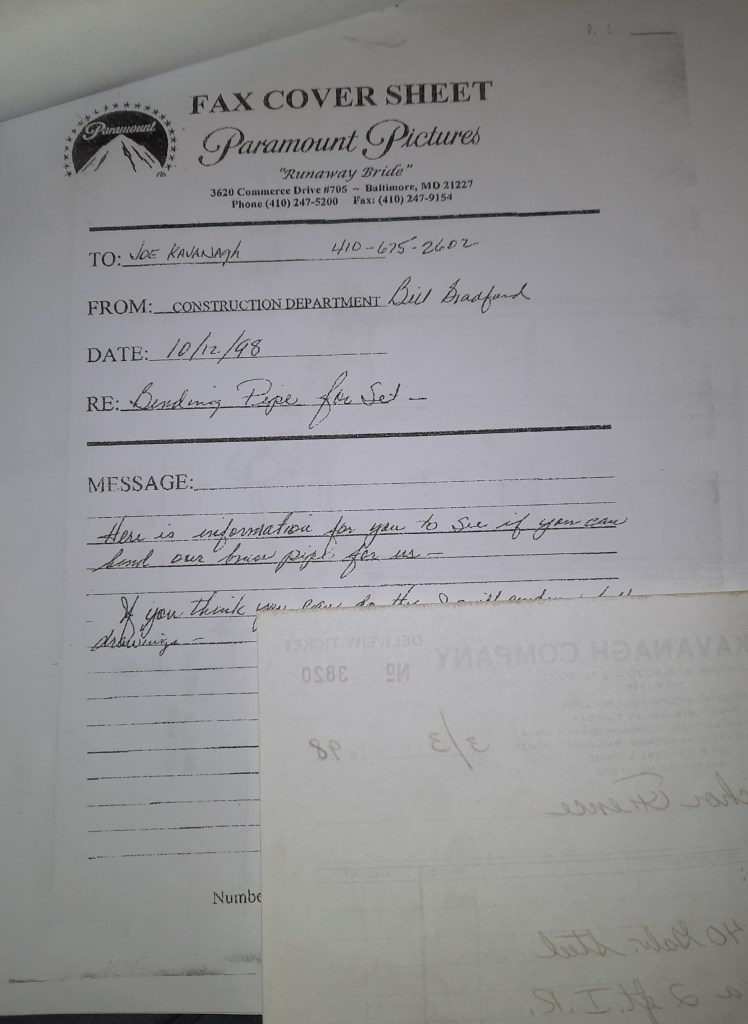 P. 1
FAX COVER SHEET
Paramount
Paramount Pictures
"Runaway Bride"
3620 Commerce Drive #705 ~ Baltimore, MD 21227
Phone (410) 247-5200 Fax: (410) 247-9154
TO: JOE KAVANAGH 410-675-2602
FROM: CONSTRUCTION DEPARTMENT Bill Bradford
DATE: 10/12/98
RE: Bending Pipe for Set -
MESSAGE:
Here is information for you to see if you can
bend our brass pipe for us -
If you think you can do this
drawings -
KAVANAGH COMPANY
DELIVERY TICKET
Nº 3820
3/3 98
Fence
40 Galv. Steel
2 ft. I.R.
Numbe